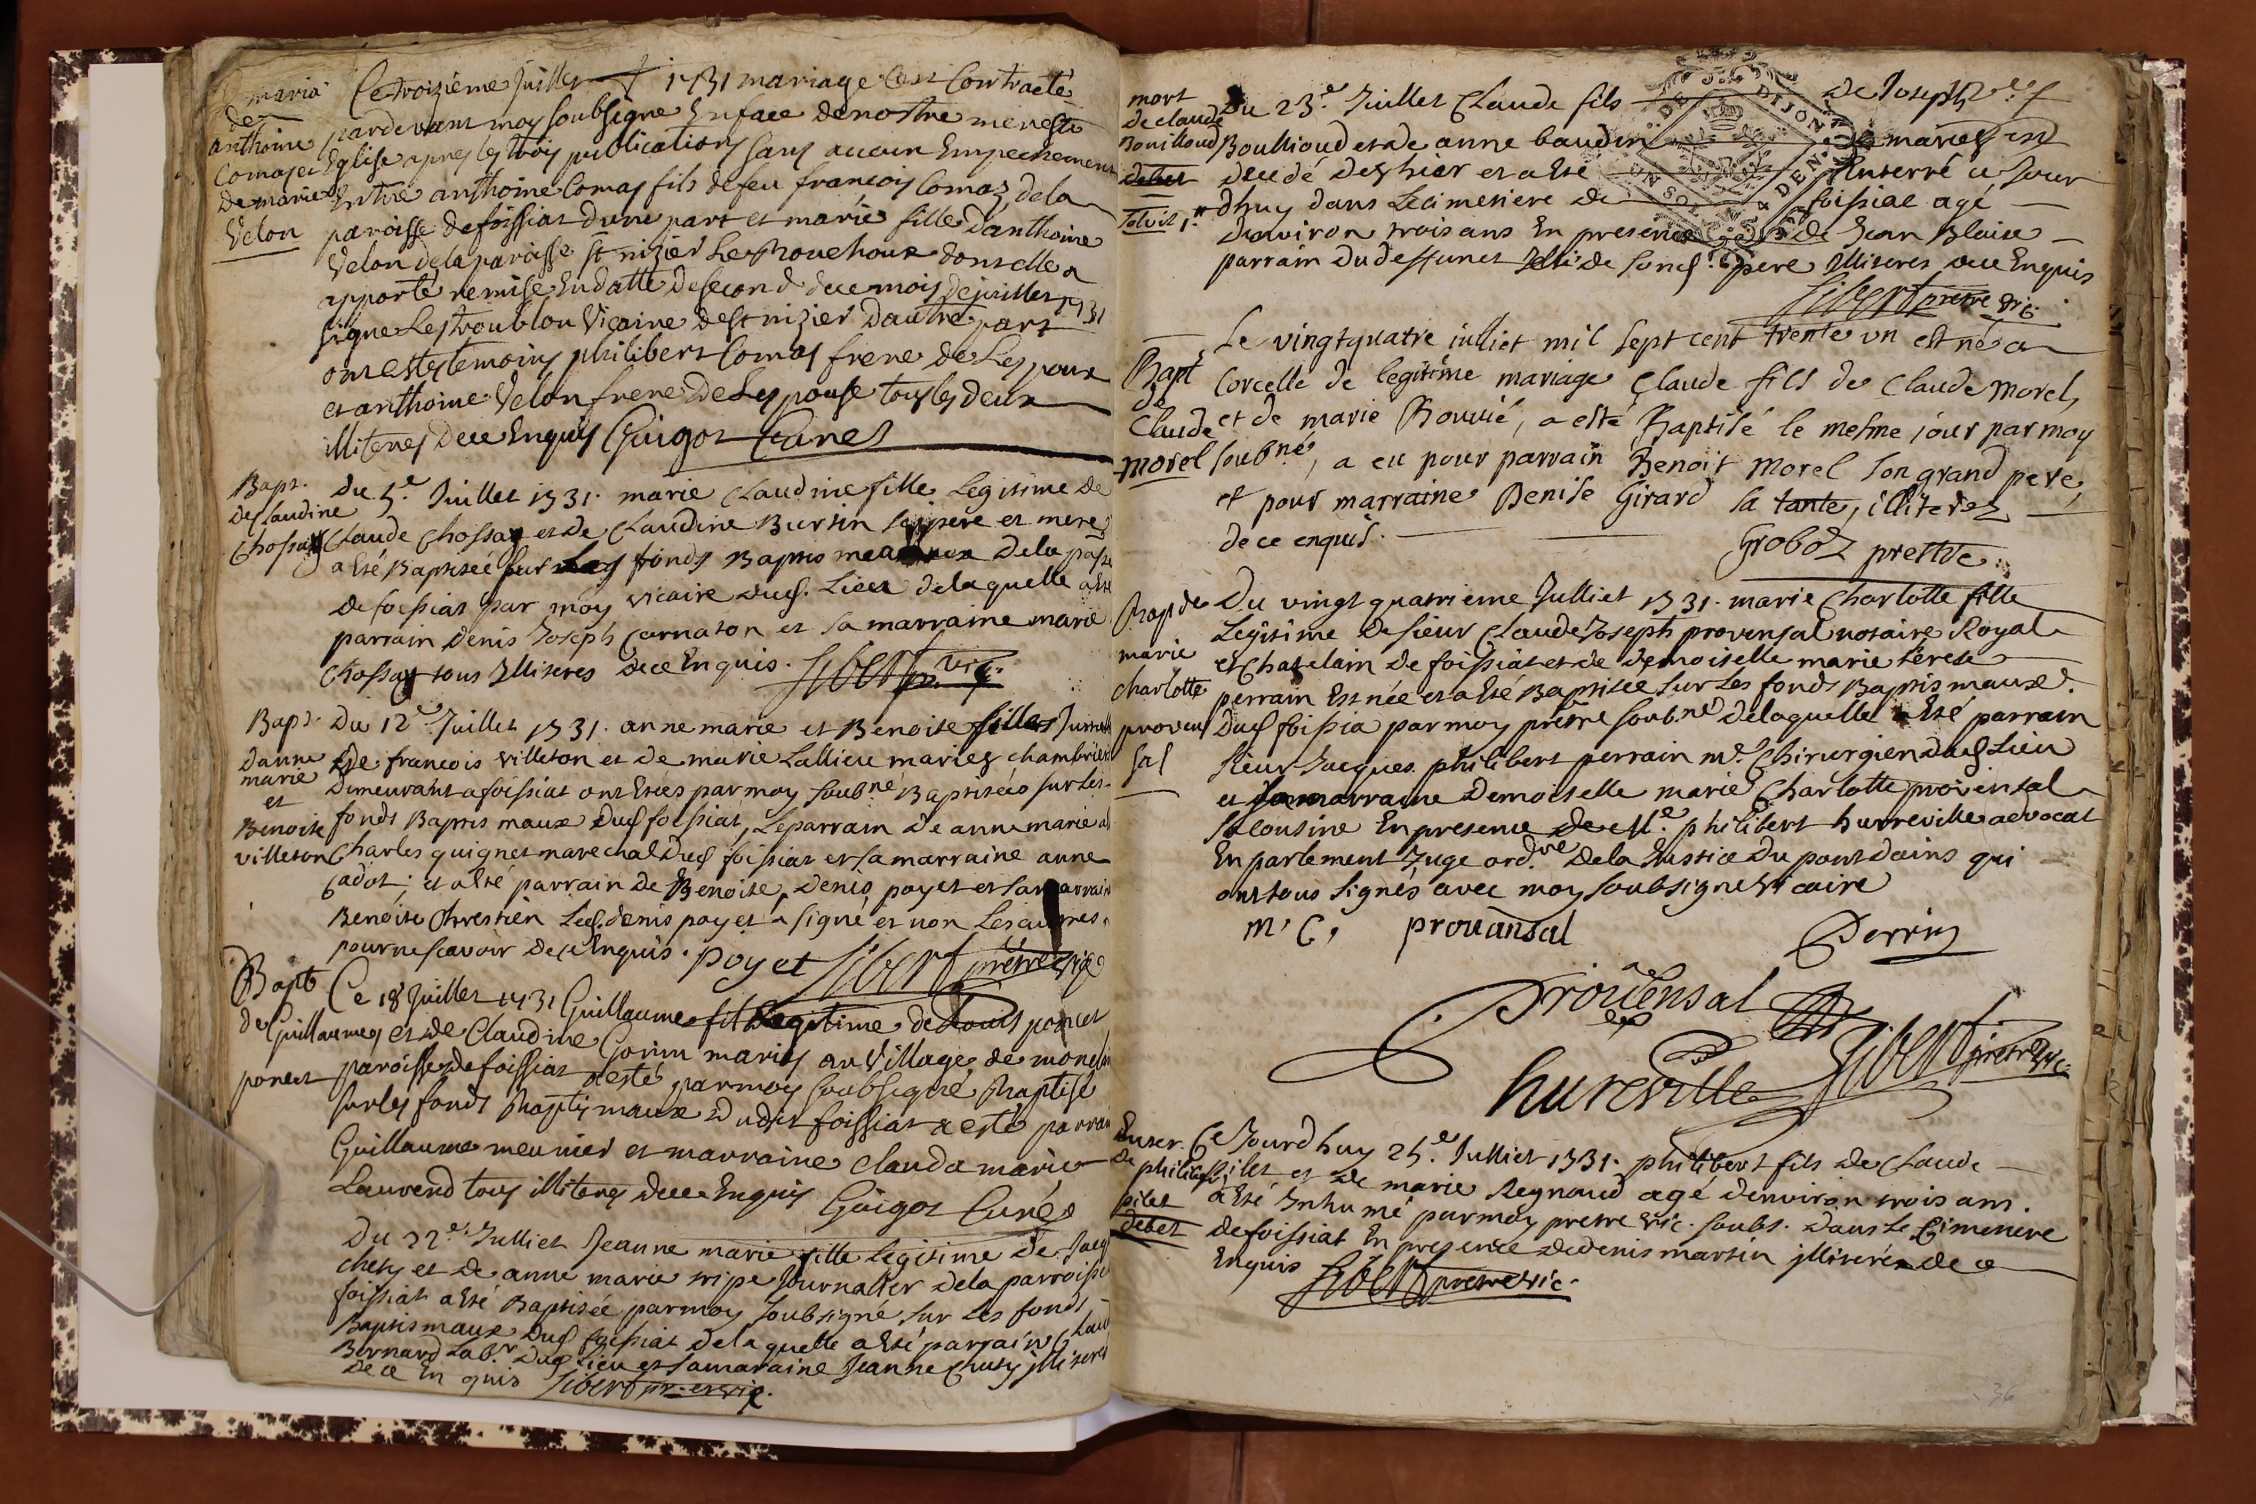 maria
de
anthoine
Comas et
de marie
Velon
Ce troizieme Juillet 1731 mariage s'est Contracté
pardevant moy soubsigné En face de nostre mere ste
Eglise apres les trois publications sans aucun Empechement
Entre anthoine Comas fils de feu francois Comas de la
paroisse de foissiat d'une part et marie fille d'anthoine
Velon de la paroisse st nizier Le Bouchoux dont elle a
apporté remise En datte de second de ce mois de juillet 1731
signe Lestroublon Vicaire de st nizier d'autre part
ont estes temoins philibert Comas frere de Lespoux
et anthoine Velon frere de Lespouse tous les deux
illiterez de ce Enquis Guigot Curé
Bapt.
de Claudine
Chossat
Du 5.e Juillet 1731. marie Claudine fille Legitime de
Claude Chossat et de Claudine Burtin ses pere et mere
a Eté Baptisée sur Les fonds Baptismeaux de la passe
de foissiat par moy vicaire dud. Lieu de laquelle a Eté
parrain denis Joseph Carnaton et sa marraine marie
Chossat tous Illiteres de ce Enquis. Libert p. vic.
Bapt.
danne
marie
et
Benoite
villeton
Du 12.e Juillet 1731. anne marie et Benoite filles Jumelles
De francois villeton et de marie Lallieu mariez chambrier
Demeurant a foissiat ont Etées par moy soubné Baptisées sur les
fonds Baptismaux dud foissiat, Le parrain de anne marie a
Charles guignet marechal dud foissiat et sa marraine anne
Cadot; et a Eté parrain de Benoite, denis poyet et sa marraine
Benoite Chrestien Led. denis poyet a signé et non Les autres
pour ne scavoir de ce Enquis. poyet Libert pretre vic
Bapt
de Guillaume
poncet
Ce 18 Juillet 1731 Guillaume fils Legitime de Louis poncet
et de Claudine Gorin mariés au Village de
paroisse de foissiat a esté par moy soubsigné Baptisé
sur les fonds Baptismaux Dudit foissiat a esté parrain
Guillaume meunier et marraine Clauda marie
Laurend tous illiterez de ce Enquis Guigot Curé
Du 22.e Julliet Jeanne marie fille Legitime de Jacq
Chety et de anne marie tripe Journalier de la parroisse
foissiat a Eté Baptisée par moy soubsigné sur Les fonds
Baptismaux dud foissiat de laquelle a Eté parrain Claude
Bernard Lab.r dud Lieu et sa maraine Jeanne Chety illiteres
de ce En quis Libert p. et vic.
mort
de claude
Bouilloud
debet
solvit 1.
du 23.e Juillet Claude fils de Joseph
Boullioud et de anne baudin mariez est
decedé deshier et a Eté Enterré ce Jour
dhuy dans Le cimetiere de foissiat agé
d'environ trois ans En presence de Jean Blaise
parrain du deffunct et de sond. pere Illiteres de ce Enquis
Libert pretre vic.
DE DIJON
DEN
UN SOL
Bapt
de
Claude
morel
Le vingtquatre iulliet mil sept cent trente un est né a
Corcelle de legitime mariage Claude fils de Claude Morel,
et de marie Bouvié, a esté Baptisé le mesme jour par moy
soubné, a eu pour parrain Benoit Morel son grand pere,
et pour marraine Denise Girard sa tante, illiterez
de ce enquis.
Groboz prettre
Bap de
marie
charlotte
proven
sal
Du vingt quatrieme Julliet 1731. marie Charlotte fille
Legitime de sieur Claude Joseph provensal notaire Royal
et Chatelain de foissiat et de demoiselle marie terese
perrain Est née et a Eté Baptisée sur Les fonds Baptismaux
Dud foissia par moy prêtre soubné de laquelle a Eté parrain
sieur Jacques philibert perrain m.e Chirurgien dud Lieu
et sa marraine Demoiselle marie Charlotte provensal
sa Cousine En presence de M.e philibert hurreville advocat
En parlement Juge ord.re de la Justice du pont dains qui
ont tous signés avec moy soubsigné vicaire
m. C. prouansal Perrin
Provensal
hureville Libert pretre vic.
Enter.
de philibert
pilet
debet
Ce Jourdhuy 25.e Julliet 1731. philibert fils de Claude
Pilet et de marie Reynaud agé d'environ trois ans.
a Eté Inhumé par moy pretre vic. soubs. dans Le Cimetiere
de foissiat En presence de denis martin illiteré de ce
Enquis Libert pretre vic.
36